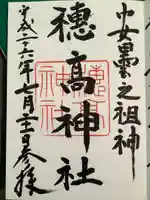 安曇之祖神
穂高神社
平成二十六年七月二十二日参拝